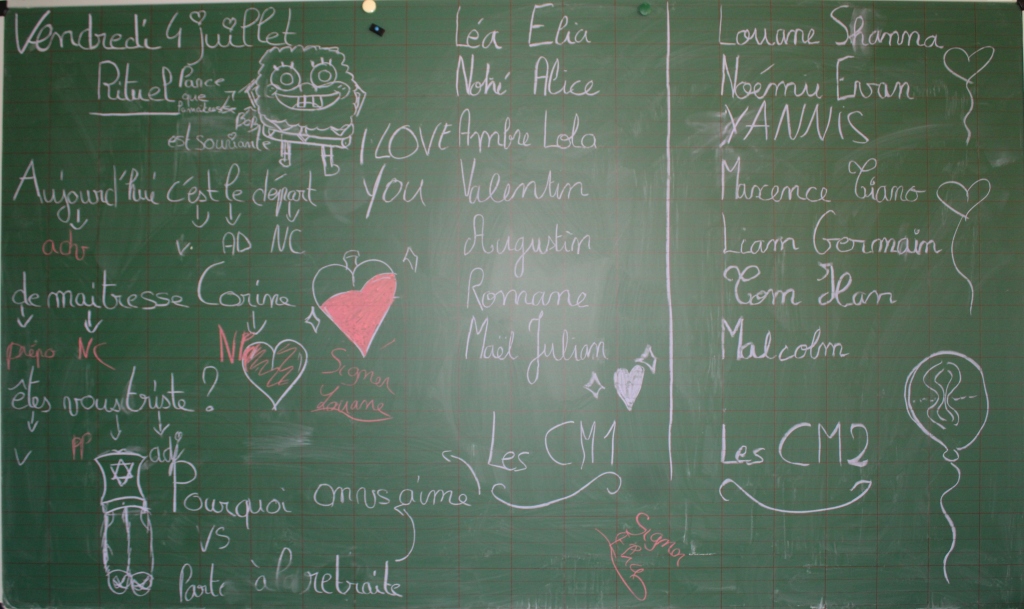 Vendredi 4 juillet
Rituel
Parce
que
est souriante
Aujourd'hui c'est le départ
adv
v. AD NC
de maitresse Corine
prépo NC NP
êtes vous triste ?
v PP adj
Signer
Louane
Pourquoi on vs aime
VS
Partc à la retraite
I LOVE
YOU
Léa Elia
Nohé Alice
Ambre Lola
Valentin
Augustin
Romane
Maël Julian
Les CM1
Signer
Louane Shanna
Noémie Evan
YANNIS
Maxence Tiano
Liam Germain
Tom Ilan
Malcolm
Les CM2